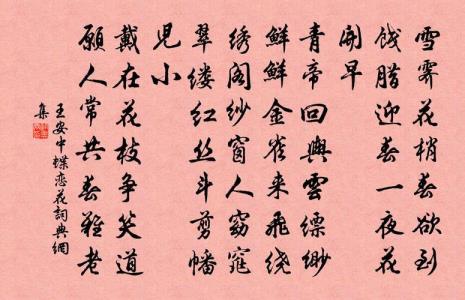 雪霁花梢春欲到
饯腊迎春一夜花
开早
青帝回舆云缥缈
鲜鲜金雀来飞绕
绣阁纱窗人窈窕
翠缕红丝斗剪幡
儿小
戴在花枝争笑道
愿人常共春难老
王安中蝶恋花词典网
集